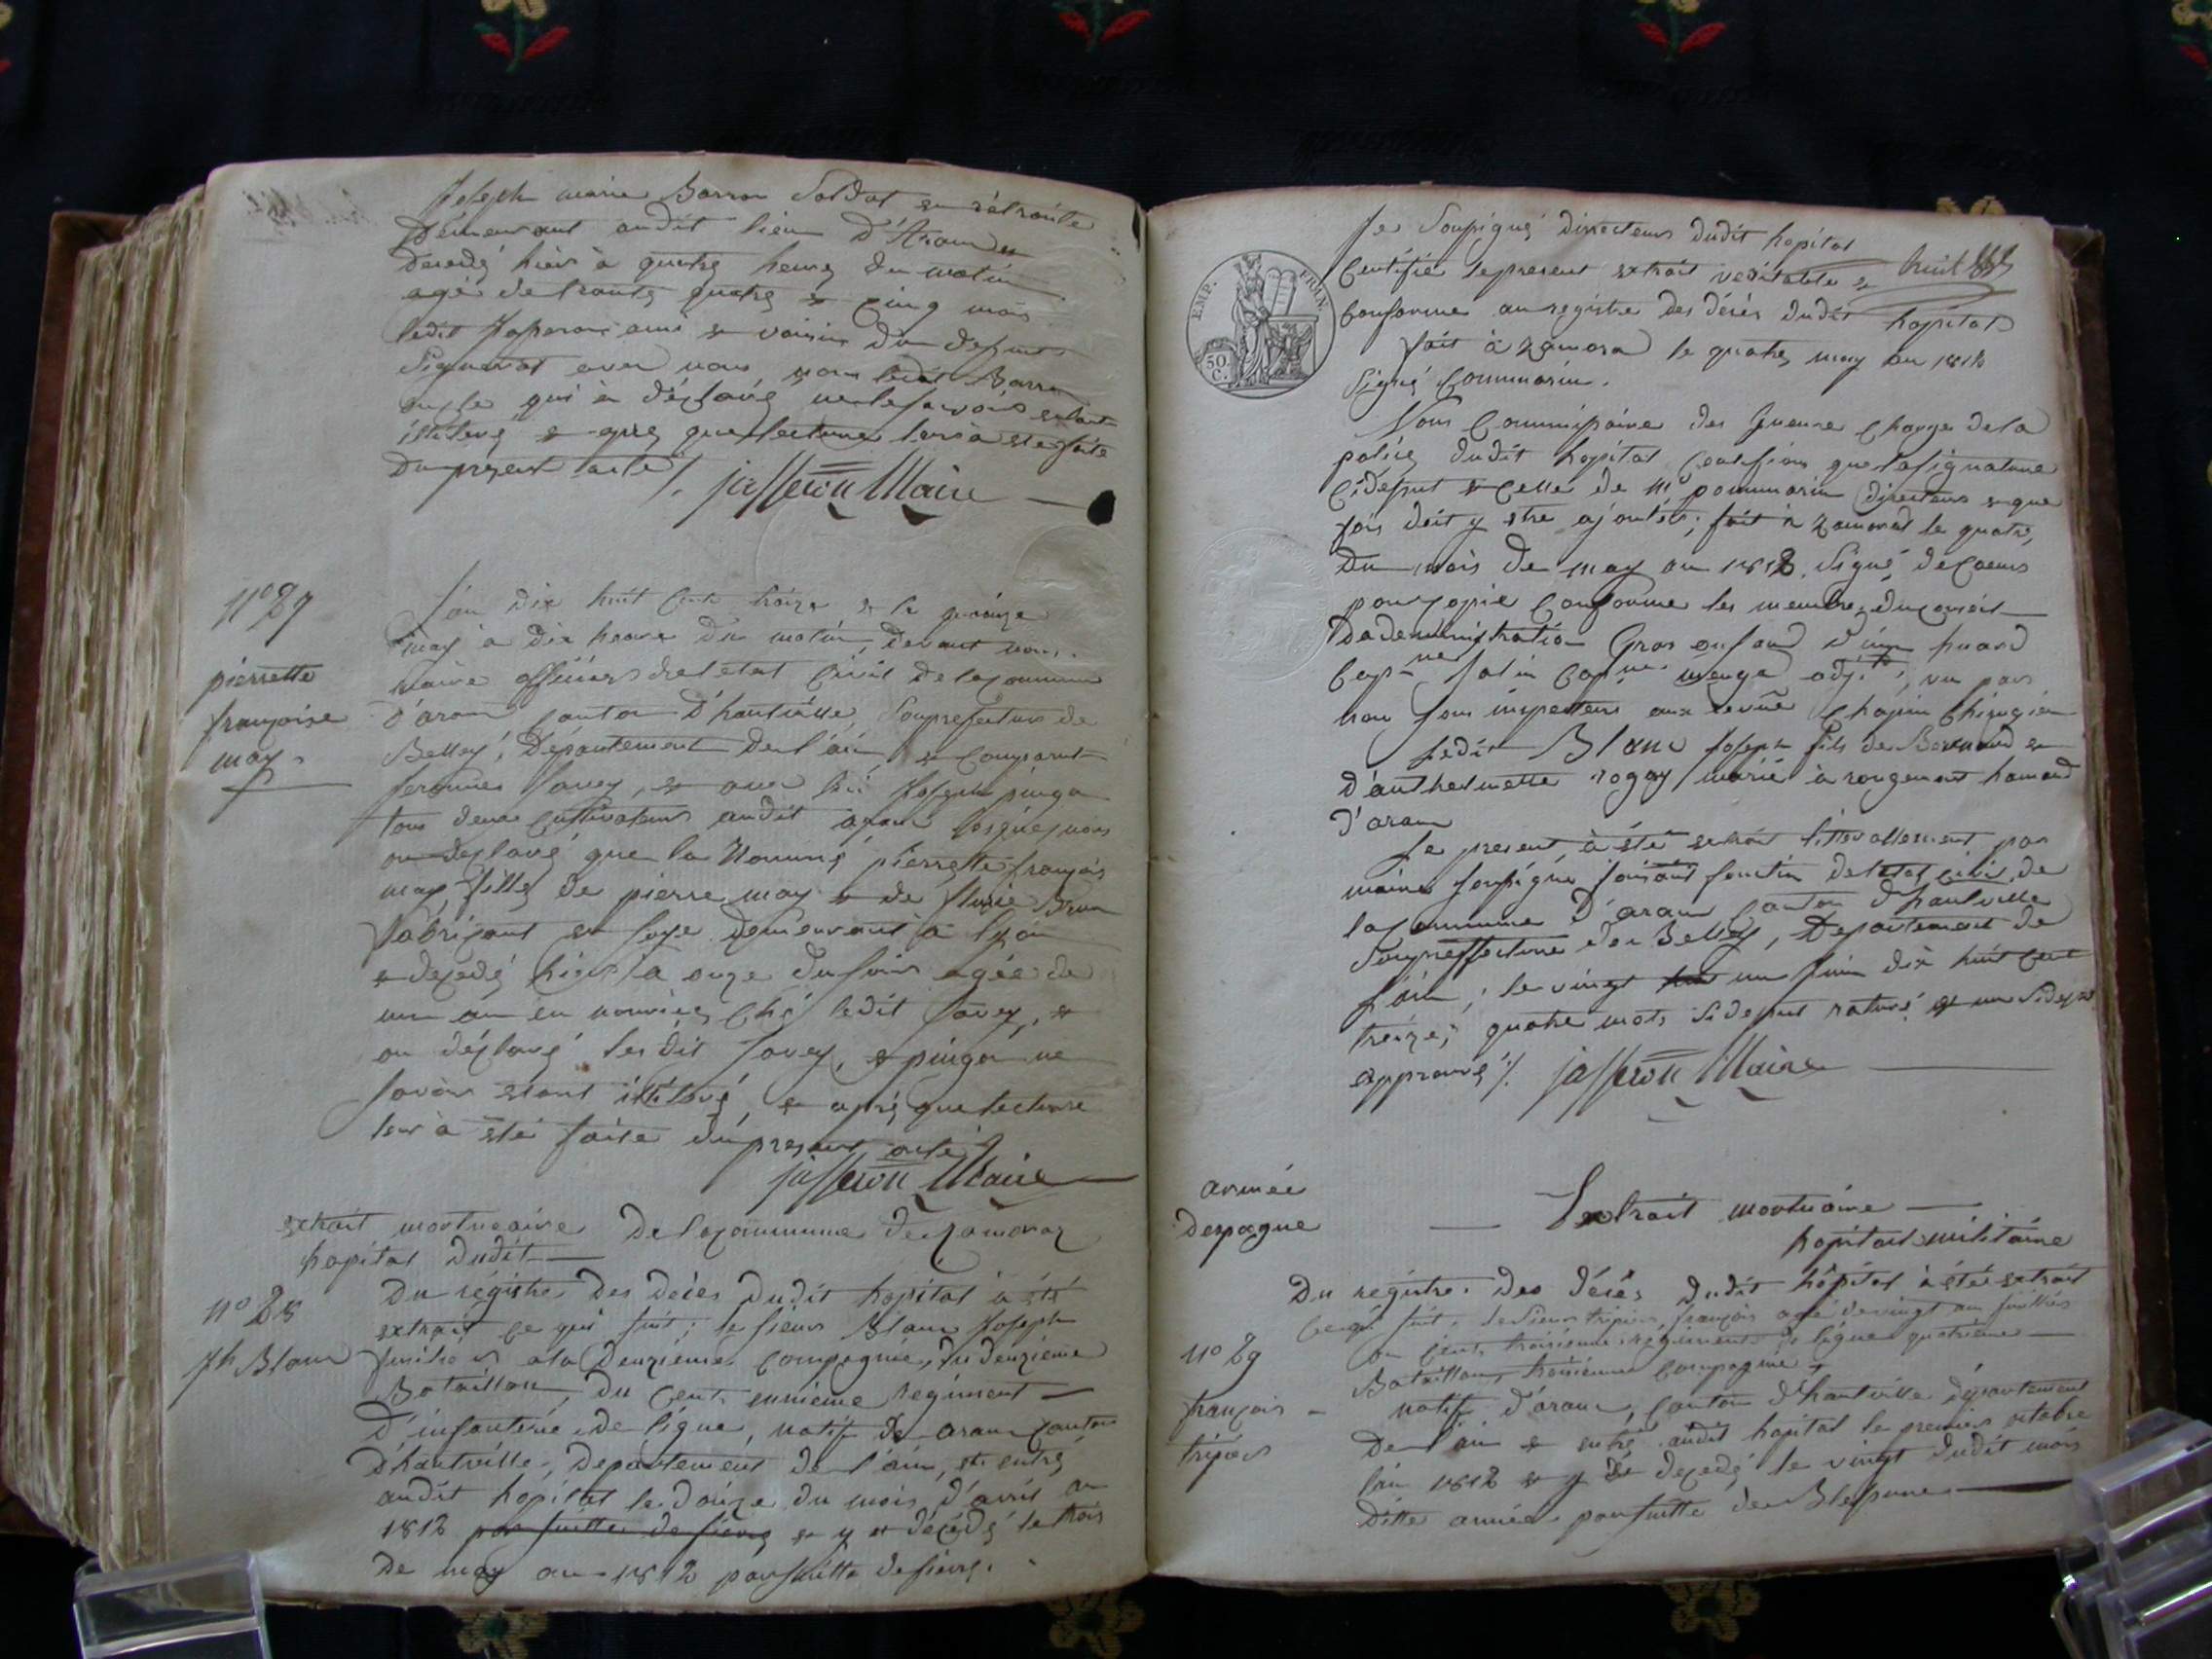 Joseph marie Barron Soldat en retraite
demeurant audit lieu d'Aran est
decedé hier à quatre heures du matin
agé de trante quatre et cinq mois
ledit Japeron ami et voisin du defunt
Signerat avec nous non ledit Barron
qui à déclaré ne le savoir estant
illiteré et apres que lecture leur à ste faite
du present acte ./. jasseron Maire
n° 27
pierrette
françoise
may
L'an dix huit cent traize et le quinze
may à dix heure du matin, devant nous
maire officiers de letat Civil de la commune
d'aran canton d'hauteville, Souprefecture de
Belley, Departement de l'ain, est comparut
Savey, et avec lui Joseph pingon
tous deux cultivateurs audit aran lesquels nous
on declaré que la Nommé pierrette françois
may, fille de pierre may et de Brun
fabricant en soye demeurant a lyon
est decedé hier à onze du soir agée de
un an en nourrice ché ledit Savey, et
on déclaré lesdit Savey, et pingon ne
savoir étant illiteré, et après que lecture
leur à été faite du present acte
jasseron Maire
extrait mortueaire De la commune de Zamoraz
hopital dudit
n° 28
Jh Blanc
Du régistre des décès dudit hopital à été
extrait ce qui suit; le sieur Blanc Joseph
fusilier a la Deuxieme compagnie, du deuxieme
Bataillon, du cent unième regiment
d'infanterie de ligne, natif de aran canton
d'hauteville, Departement de l'ain, est entré
audit hopital le douze du mois d'avril an
1812 par suitte de fievre et y est décédé le trois
de may an 1812 par suitte de fievre.
EMP. FRAN.
50 C.
Je Soupigné directeur dudit hopital
Certifie le present extrait veritable et
conforme au registre des décés dudit hopital
fait à Zamora le quatre may an 1812
Signé Commarin.
Nous Commissaire des Guerre chargé de la
police dudit hopital certifions que la signature
cidesut est celle de Mr pommarin directeur et que
fois doit y etre ajoutée; fait à Zamorat le quatre
Du mois de may an 1812. Signé
pour copie conforme les membre du conseil
Dadeministration Gros
Cap-ne Jolin Capne adjt, vu par
nou sous inspecteur aux revue
ledit Blanc Joseph fils de Bernard et
d'anthelmette roggy marié à rongemont hamaud
d'aran
Le present à été extrait litterallement par
maire soupigné faisant fonction de letat civil de
la commune d'aran canton d'hauteville
Souprefecture de Belley, Departement de
l'ain; le vingt un juin dix huit cent
treize; quatre mots sidesut raturé et un sidesut
approuvé ./. jasseron Maire
armée
despagne
— Extrait mortuaire —
hopital militaire
n° 29
françois
tripier
Du registre des décés dudit hôpital à été extrait
ce qui suit, le sieur tripier françois agé de vingt an fusillier
au cent troisieme regiment de ligne quatrieme
Bataillon, troisieme compagnie
natif d'aran, canton d'hauteville département
De l'ain est entré audit hopital le premier octobre
l'an 1812 et y est decedé le vingt dudit mois
Ditte année par suitte de Blessure